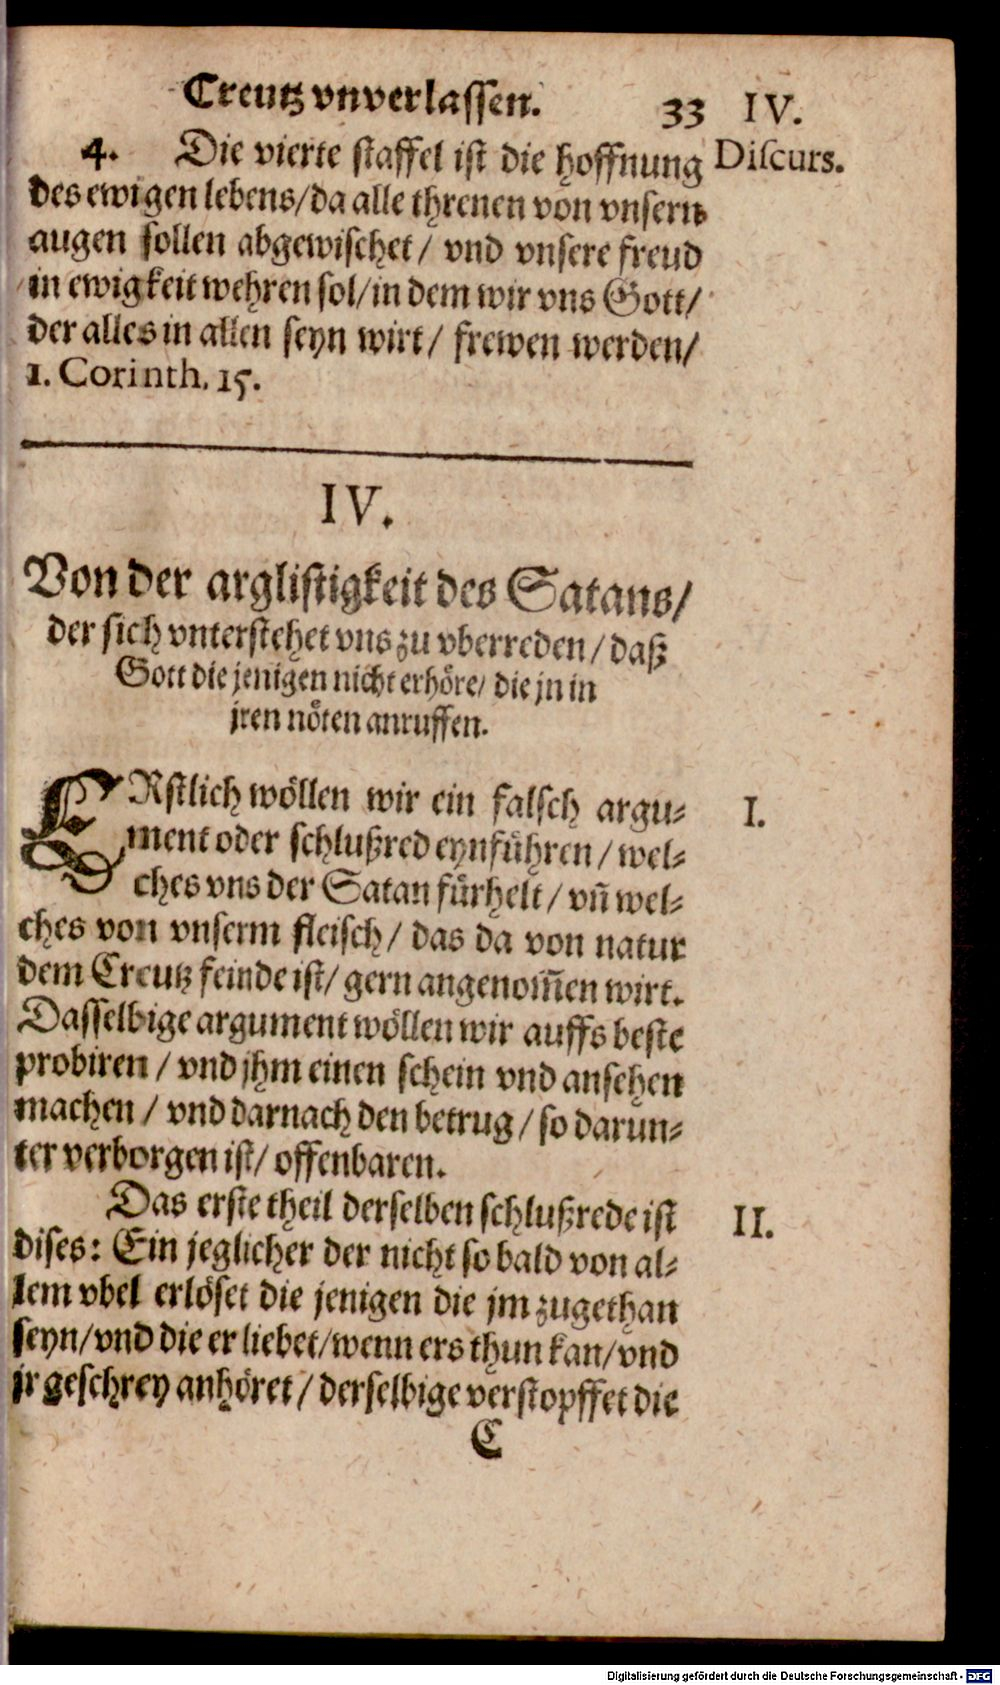 Creutz vnverlassen. 33 IV.
4. Die vierte staffel ist die hoffnung Discurs.
des ewigen lebens/da alle threnen von vnsern
augen sollen abgewischet/ vnd vnsere freud
in ewigkeit wehren sol/in dem wir vns Gott/
der alles in allen seyn wirt/ frewen werden/
1. Corinth. 15.
IV.
Von der arglistigkeit des Satans/
der sich vnterstehet vns zu vberreden/ daß
Gott die jenigen nicht erhöre/ die jn in
jren nöten anruffen.
ERstlich wöllen wir ein falsch argu- I.
ment oder schlußred eynführen/ wel-
ches vns der Satan fürhelt/ vñ wel-
ches von vnserm fleisch/ das da von natur
dem Creutz feinde ist/ gern angenom̃en wirt.
Dasselbige argument wöllen wir auffs beste
probiren/ vnd jhm einen schein vnd ansehen
machen/ vnd darnach den betrug/ so darun-
ter verborgen ist/ offenbaren.
Das erste theil derselben schlußrede ist II.
dises: Ein jeglicher der nicht so bald von al-
lem vbel erlöset die jenigen die jm zugethan
seyn/vnd die er liebet/wenn ers thun kan/vnd
jr geschrey anhöret/ derselbige verstopffet die
C
Digitalisierung gefördert durch die Deutsche Forschungsgemeinschaft - DFG